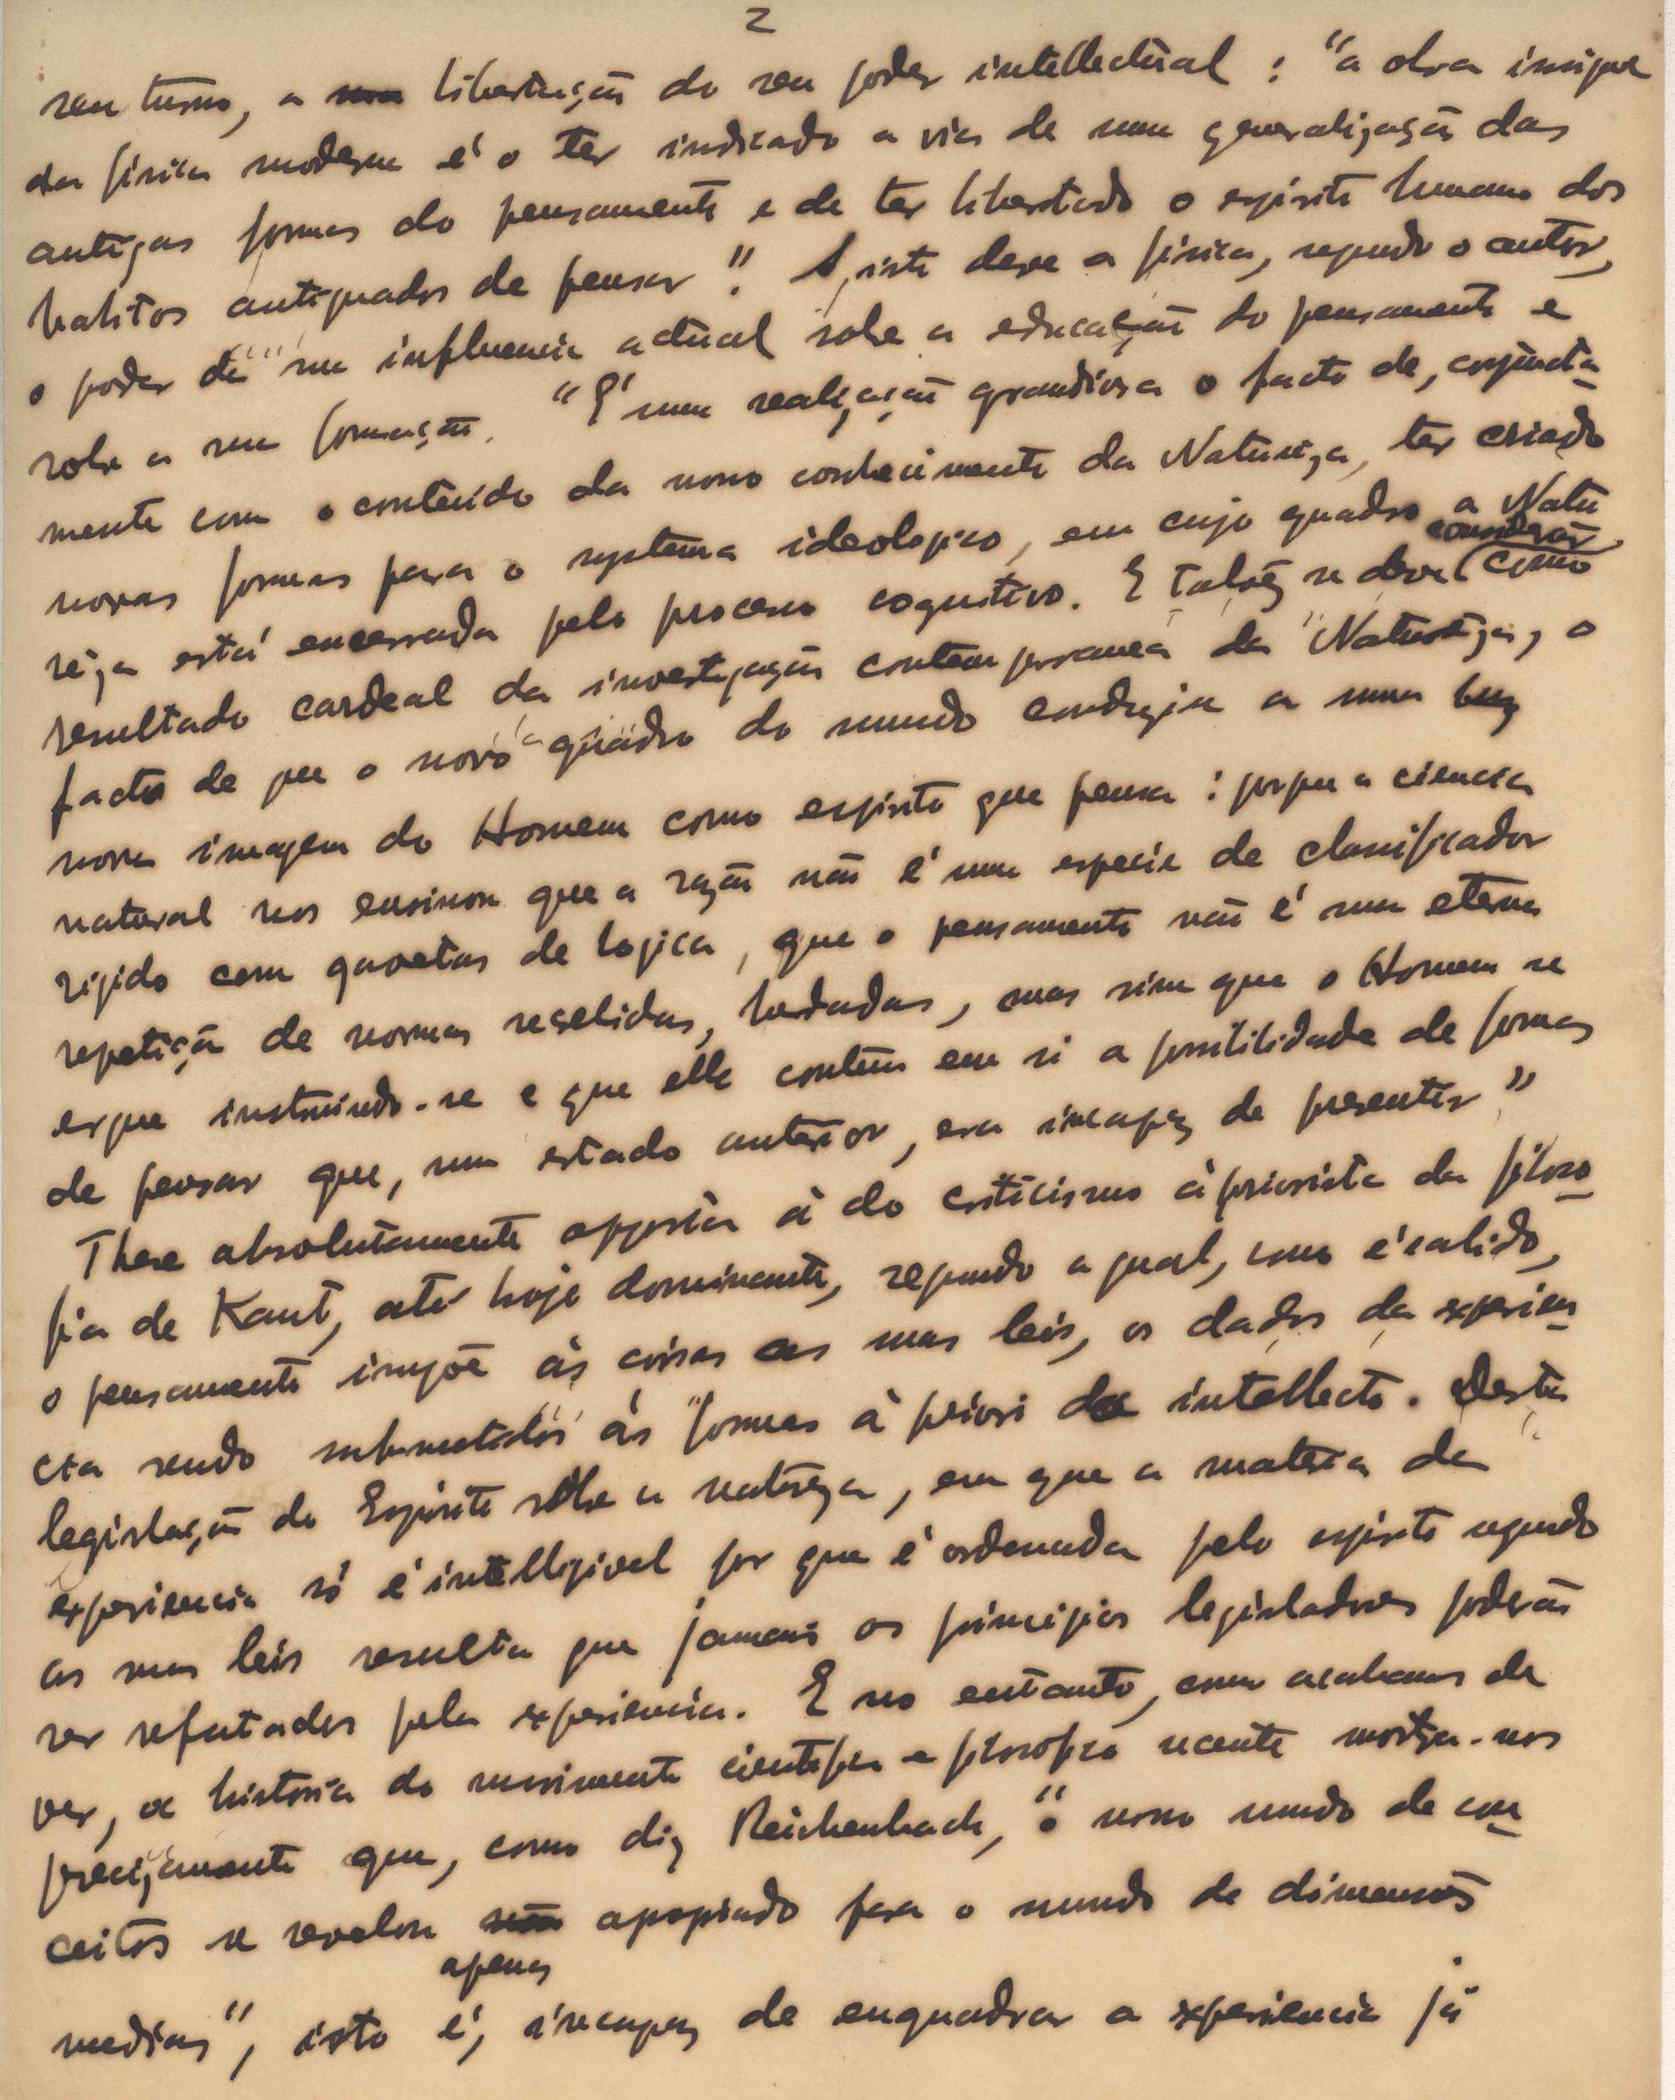 2
seu turno, a libertação do seu poder intellectual : "a obra insigne
da física moderna é o ter indicado a via de uma generalização das
antigas formas do pensamento e de ter libertado o espirito humano dos
habitos antiquados de pensar". A isto deve a física, segundo o autor,
o poder da sua influencia actual sobre a educação do pensamento e
sobre a sua formação. "É uma realização grandiosa o facto de, conjuncta-
mente com o conteúdo do novo conhecimento da Natureza, ter criado
novas formas para o systema ideologico, em cujo quadro a Natu
reza está encerrada pelo processo cognitivo. E talvez se deva considerar como
resultado cardeal da investigação contemporanea da Natureza, o
facto de que o novo quadro do mundo conduziu a uma
nova imagem do Homem como espirito que pensa : porque a ciencia
natural nos ensinou que a razão não é uma especie de classificador
rigido com gavetas de logica, que o pensamento não é uma eterna
repetição de normas recebidas, herdadas, mas sim que o Homem se
ergue instruindo-se e que elle contém em si a possibilidade de formas
de pensar que, num estado anterior, era incapaz de presentir"
These absolutamente opposta á do criticismo àpriorista da filoso-
fia de Kant, até hoje dominante, segundo a qual, como é sabido,
o pensamento impõe ás coisas as suas leis, os dados da experien-
cia sendo submetidos ás formas à priori do intellecto. Desta
legislação do Espirito sobre a natureza, em que a materia da
experiencia só é intelligivel por que é ordenada pelo espirito segundo
as suas leis resulta que jamais os principios legisladores poderão
ser refutados pela experiencia. E no entanto, como acabamos de
ver, a historia do movimento cientifico e filosofico recente mostra-nos
precizamente que, como diz Reichenbach, "o nosso mundo de con-
ceitos se revelou apropiado para o mundo de dimensões
apenas
medias", isto é, incapaz de enquadrar a experiencia já